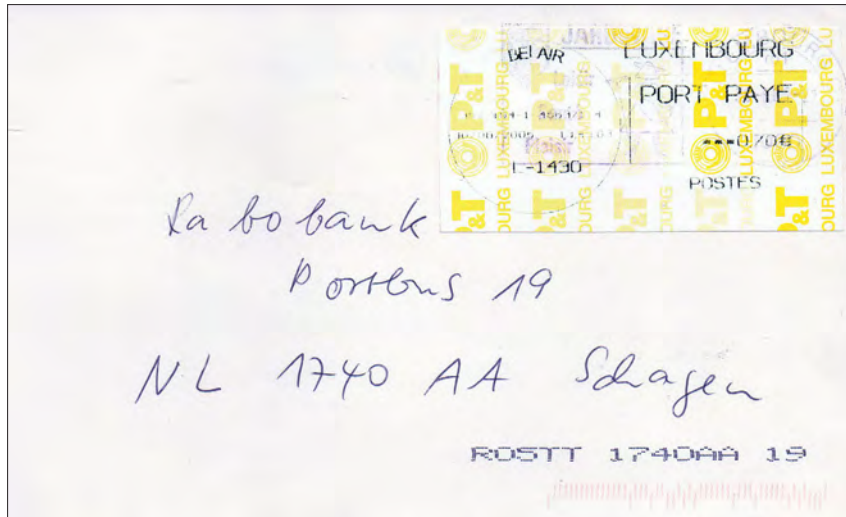 BELAIR LUXEMBOURG
PORT PAYE
***0.70€
L-1430
POSTES
P&T LUXEMBOURG
Rabobank
Postbus 19
NL 1740 AA Schagen
ROSTT 1740AA 19